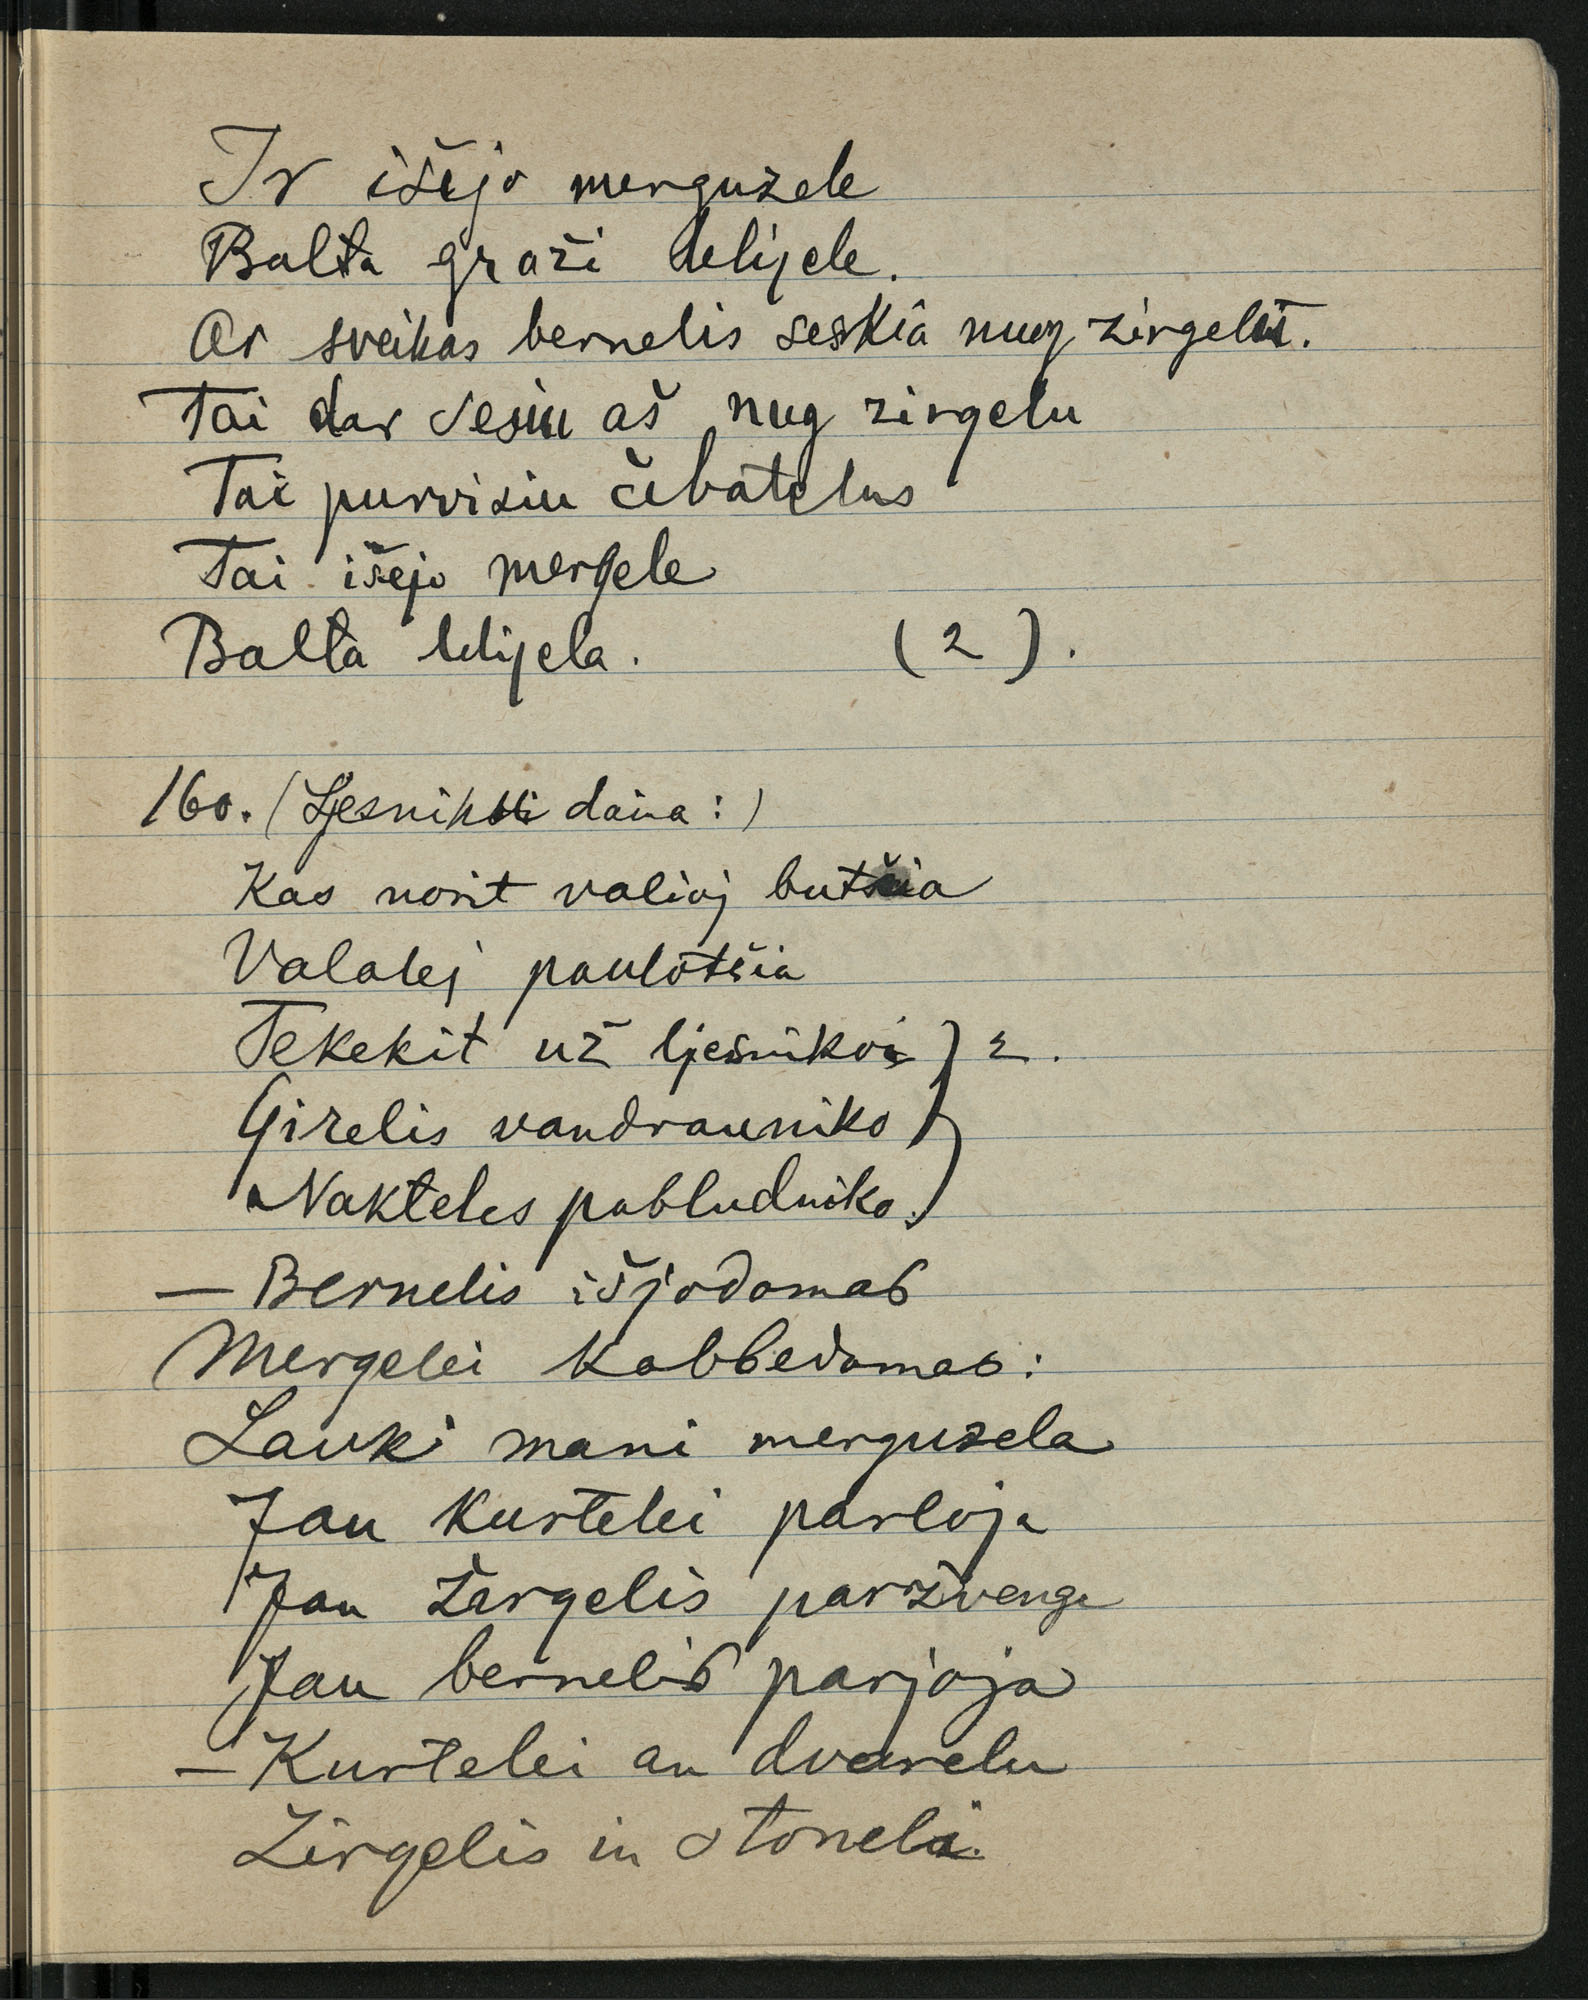 Ir išejo merguzele
Balta graži lelijele.
Ar sveikas bernelis seskia nug zirgelu.
Tai dar sesiu aš nug zirgelu
Tai purvisiu čebatelus
Tai išejo mergele
Balta lelijela. (2).
160. (Ljesnikui daina:)
Kas norit valioj butšia
Valalej paulotšia
Tekekit už ljesnikoi } 2.
Girelis vandrauniko
Nakteles pabludniko.
— Bernelis išjodamas
Mergelei kalbedamas:
Lauki mani merguzela
Jau kurtelei parloja
Jau žirgelis paržvenga
Jau bernelis parjoja
— Kurtelei an dvarelu
Zirgelis in stonela.